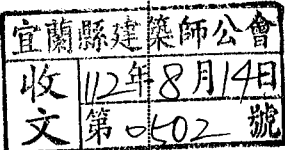 宜蘭縣建築師公會
收文 112年8月14日
第0502號